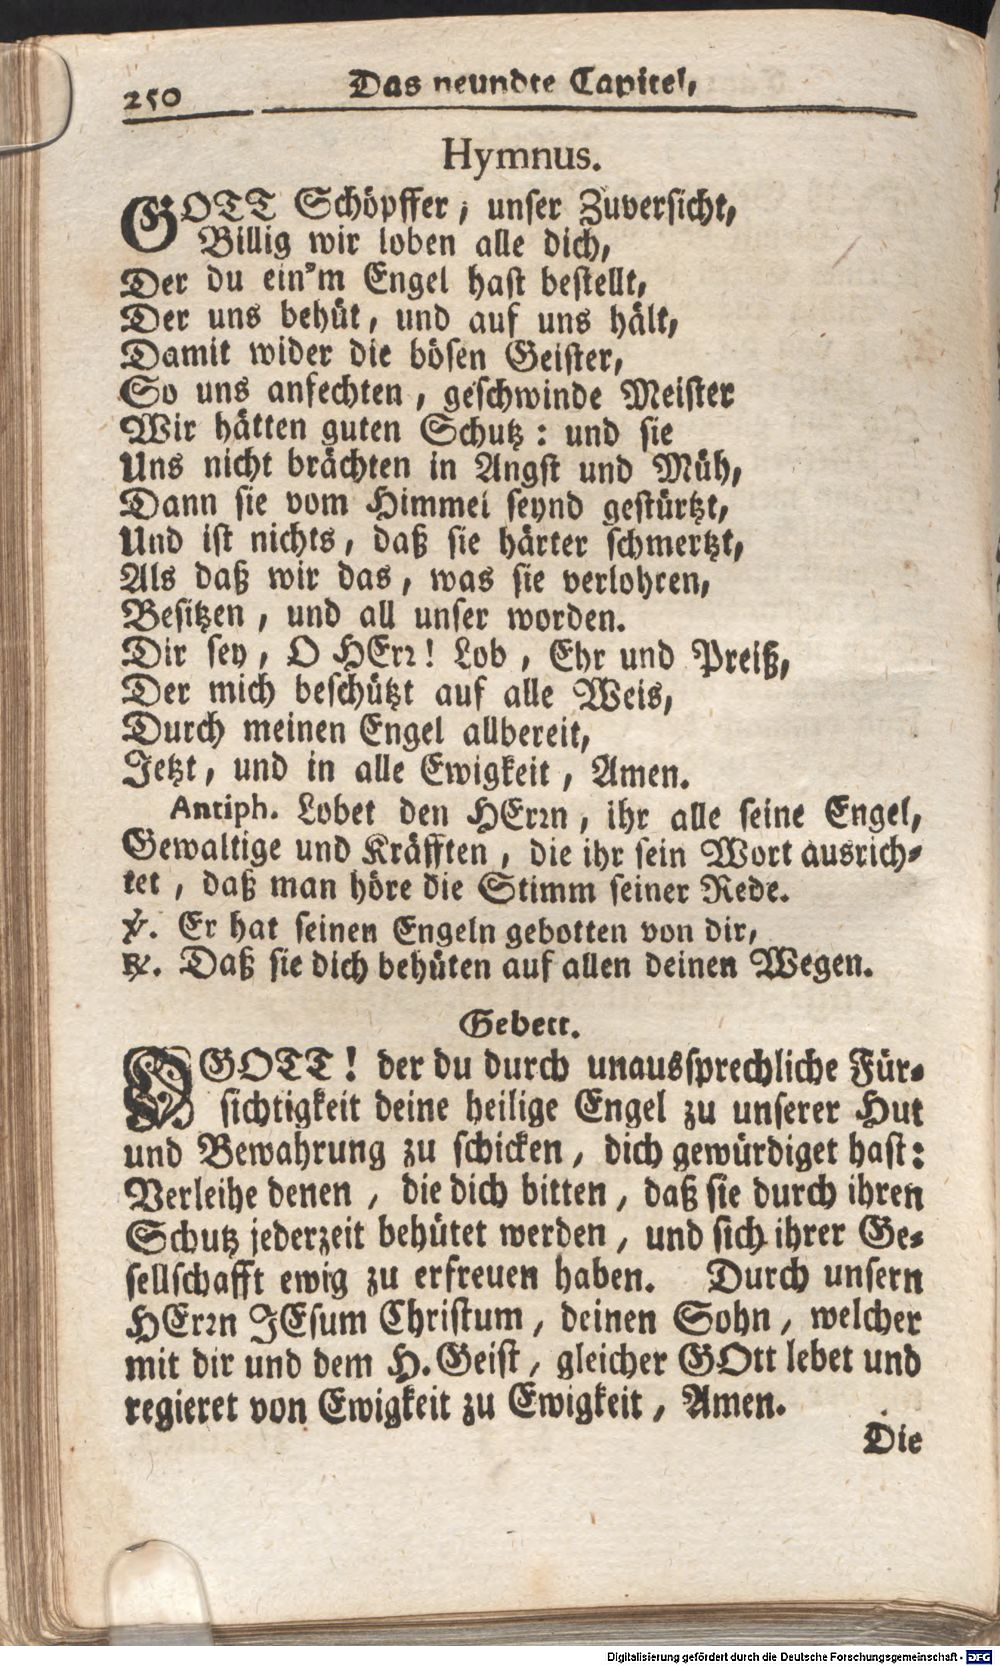 250
Das neundte Capitel,
Hymnus.
GOTT Schöpffer, unser Zuversicht,
Billig wir loben alle dich,
Der du ein'm Engel hast bestellt,
Der uns behüt, und auf uns hält,
Damit wider die bösen Geister,
So uns anfechten, geschwinde Meister
Wir hätten guten Schutz: und sie
Uns nicht brächten in Angst und Müh,
Dann sie vom Himmel seynd gestürtzt,
Und ist nichts, daß sie härter schmertzt,
Als daß wir das, was sie verlohren,
Besitzen, und all unser worden.
Dir sey, O HErr! Lob, Ehr und Preiß,
Der mich beschützt auf alle Weis,
Durch meinen Engel allbereit,
Jetzt, und in alle Ewigkeit, Amen.
Antiph. Lobet den HErrn, ihr alle seine Engel,
Gewaltige und Kräfften, die ihr sein Wort ausrich-
tet, daß man höre die Stimm seiner Rede.
℣. Er hat seinen Engeln gebotten von dir,
℟. Daß sie dich behüten auf allen deinen Wegen.
Gebett.
O GOTT! der du durch unaussprechliche Für-
sichtigkeit deine heilige Engel zu unserer Hut
und Bewahrung zu schicken, dich gewürdiget hast:
Verleihe denen, die dich bitten, daß sie durch ihren
Schutz jederzeit behütet werden, und sich ihrer Ge-
sellschafft ewig zu erfreuen haben. Durch unsern
HErrn JEsum Christum, deinen Sohn, welcher
mit dir und dem H. Geist, gleicher GOtt lebet und
regieret von Ewigkeit zu Ewigkeit, Amen.
Die
Digitalisierung gefördert durch die Deutsche Forschungsgemeinschaft - DFG